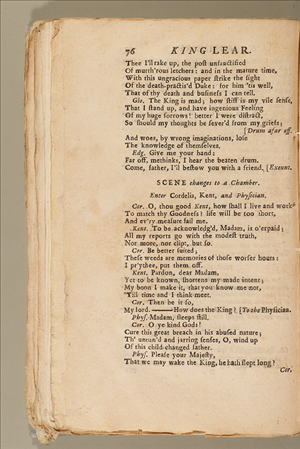 76 KING LEAR.
Thee I'll rake up, the post unsanctified
Of murth'rous letchers: and in the mature time,
With this ungracious paper strike the sight
Of the death-practis'd Duke: for him 'tis well,
That of thy death and business I can tell.
Glo. The King is mad; how stiff is my vile sense,
That I stand up, and have ingenious Feeling
Of my huge sorrows! better I were distract,
So should my thoughts be sever'd from my griefs;
[Drum afar off.
And woes, by wrong imaginations, lose
The knowledge of themselves.
Edg. Give me your hand:
Far off, methinks, I hear the beaten drum.
Come, father, I'll bestow you with a friend. [Exeunt.
SCENE changes to a Chamber.
Enter Cordelia, Kent, and Physician.
Cor. O, thou good Kent, how shall I live and work
To match thy Goodness? life will be too short,
And ev'ry measure fail me.
Kent. To be acknowledg'd, Madam, is o'erpaid;
All my reports go with the modest truth,
Nor more, nor clipt, but so.
Cor. Be better suited;
These weeds are memories of those worser hours:
I pr'ythee, put them off.
Kent. Pardon, dear Madam,
Yet to be known, shortens my made intent;
My boon I make it, that you know me not,
'Till time and I think meet.
Cor. Then be it so,
My lord. —— How does the King? [To the Physician.
Phys. Madam, sleeps still.
Cor. O ye kind Gods!
Cure this great breach in his abused nature;
Th' untun'd and jarring senses, O, wind up
Of this child-changed father.
Phys. Please your Majesty,
That we may wake the King, he hath slept long?
Cor.